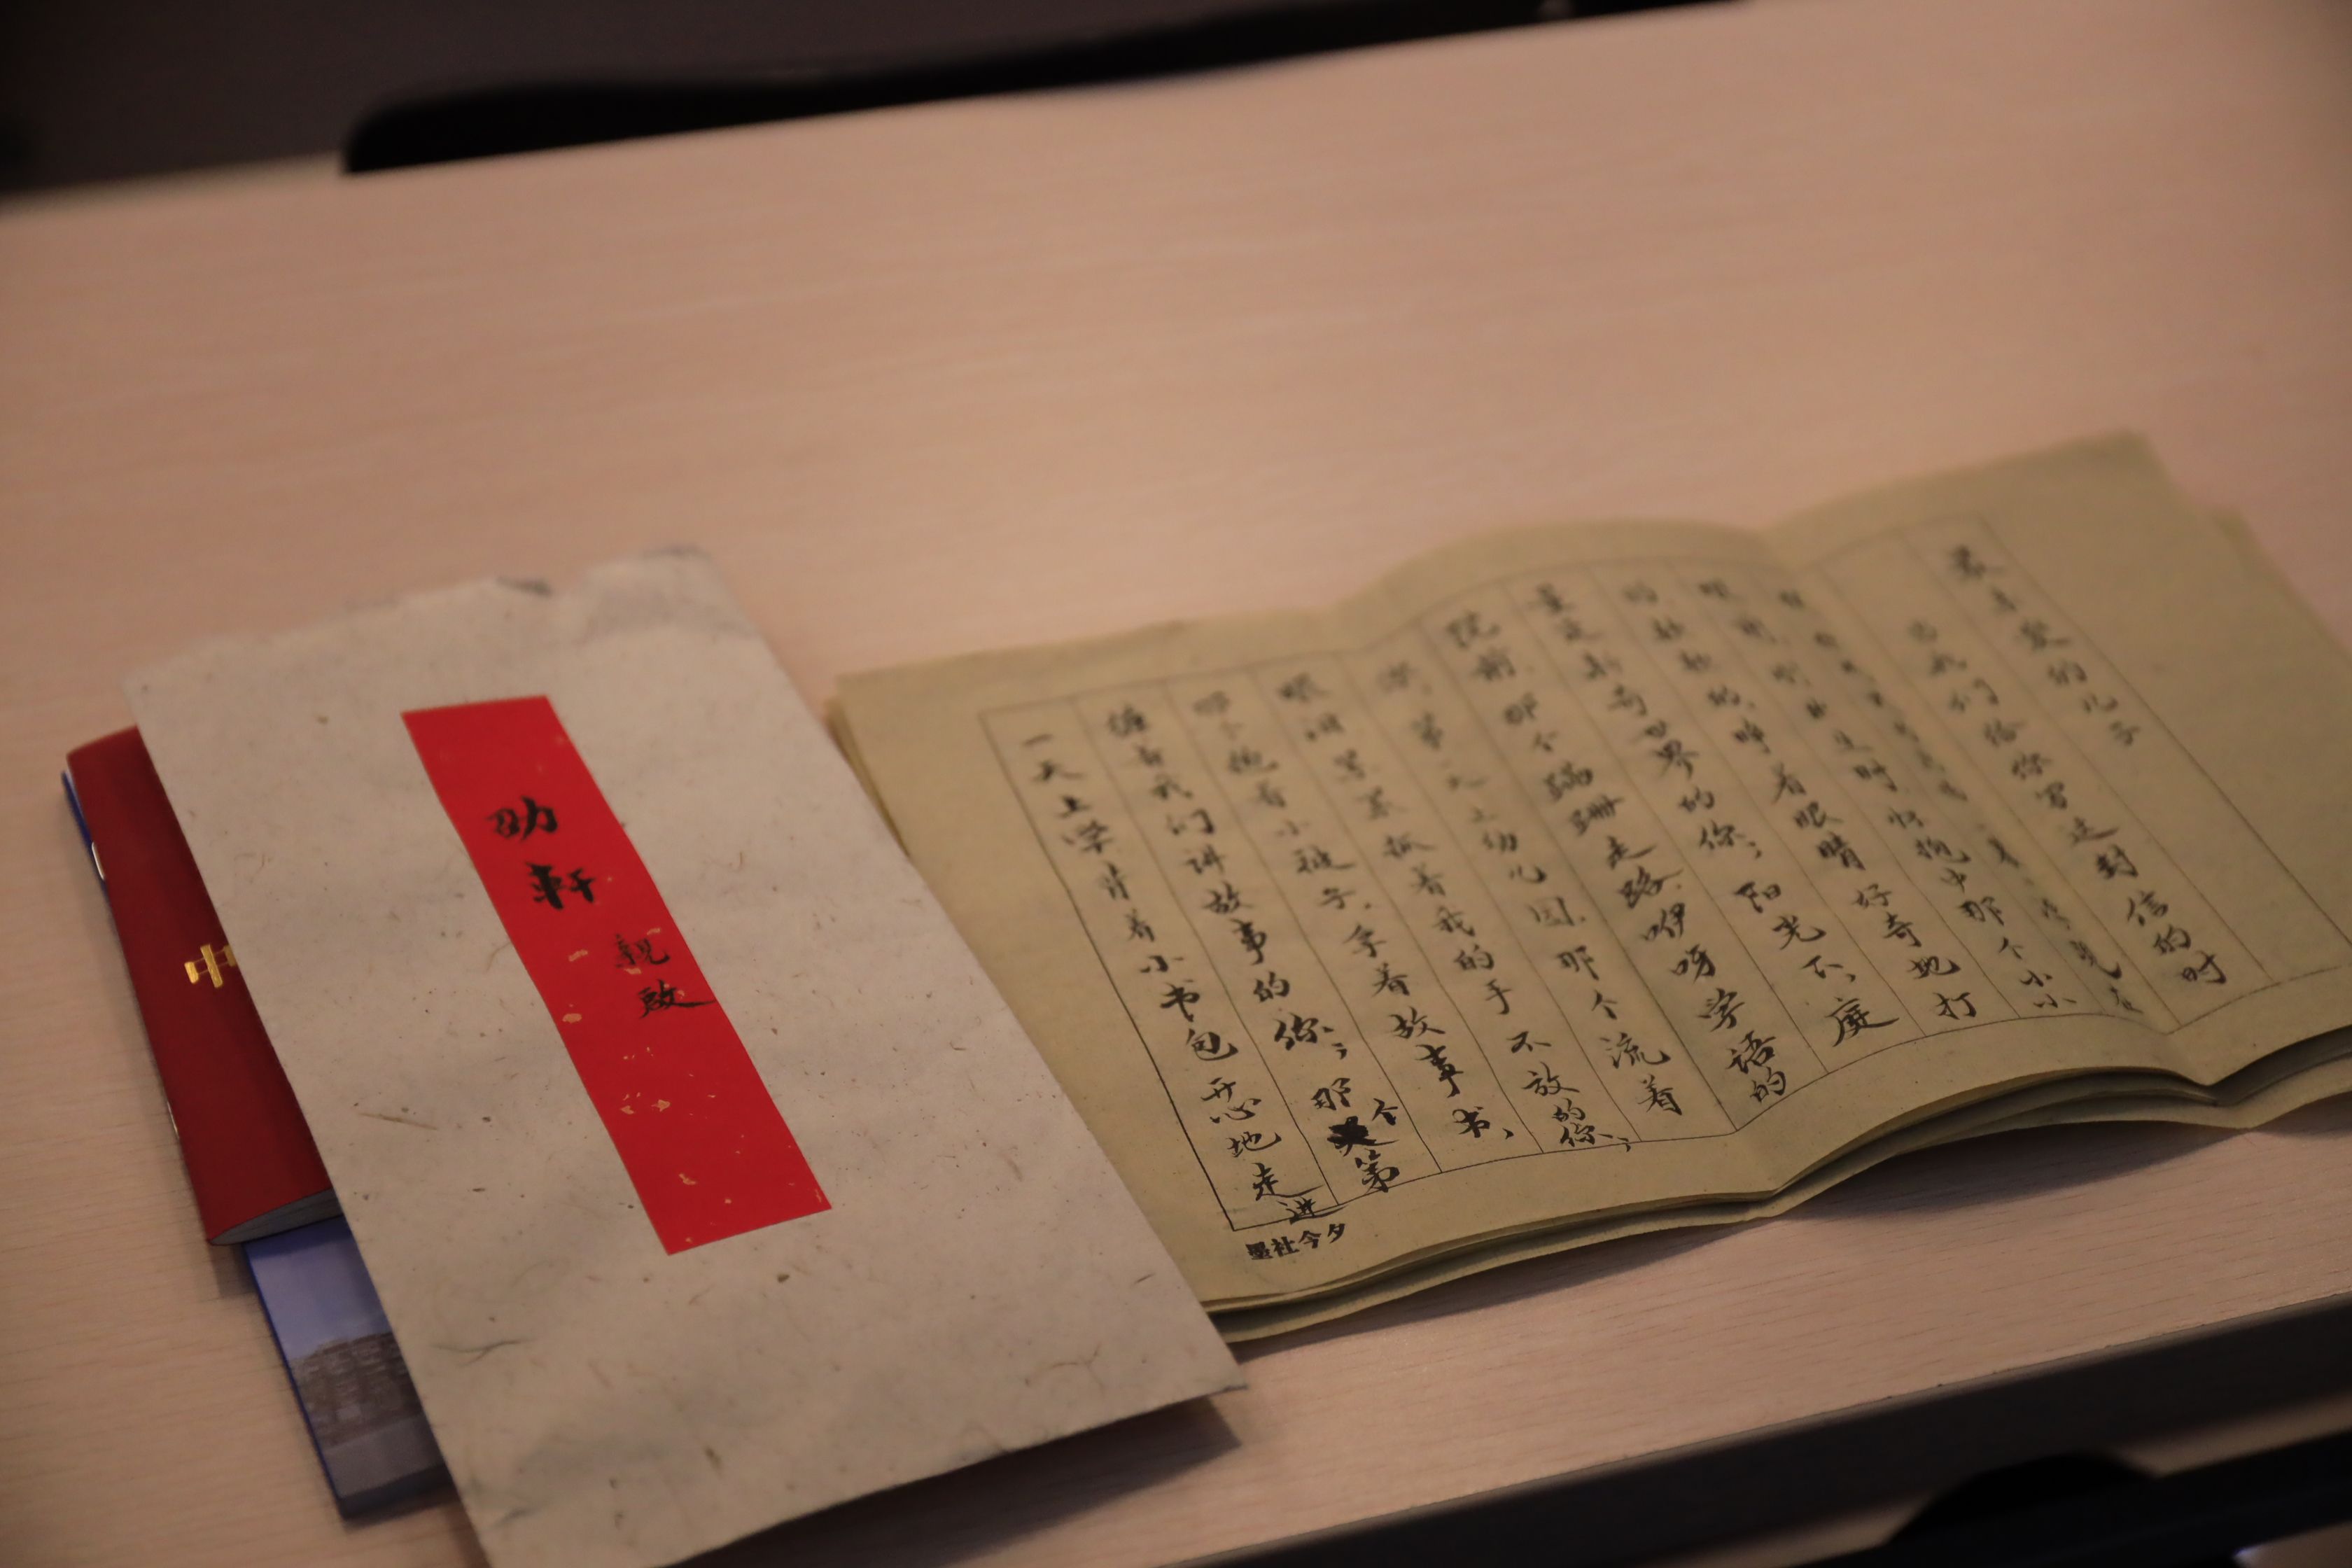 中
劭軒
親啟
最亲爱的儿子
当我们给你写这封信的时
眼前，刚出生时怀抱中那个小小
的 的，睁着眼睛好奇地打
量这新奇世界的你；阳光下，庭
院前，那个蹒跚走路，咿呀学语的
你，第一天上幼儿园，那个流着
眼泪紧紧抓着我的手不放的你；
那个抱着小被子，拿着故事书，
缠着我们讲故事的你；那个第
一天上学背着小书包开心地走进
墨社今夕